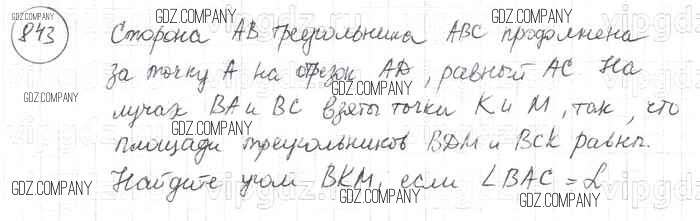 843 Сторона AB треугольника ABC продолжена
за точку A на отрезок AD, равный AC. На
лучах BA и BC взяты точки K и M, так, что
площади треугольников BDM и BCK равны.
Найдите угол BKM, если ∠BAC = α.
GDZ.COMPANY
GDZ.COMPANY
GDZ.COMPANY
GDZ.COMPANY
GDZ.COMPANY
GDZ.COMPANY
GDZ.COMPANY
GDZ.COMPANY
GDZ.COMPANY
GDZ.COMPANY